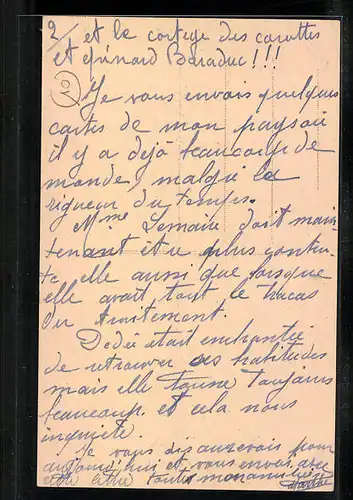 2/ et le cortege des carottes
et épinard Baraduc!!!
Je vous envois quelques
cartes de mon pays où
il y a déjà beaucoup de
monde, malgré la
rigueur du temps.
Mme Lemaire doit main-
tenant être plus conten-
te elle aussi que lorsque
elle avait tout le tracas
du traitement.
Dédée était enchantée
de retrouver ses habitudes
mais elle tousse toujours
beaucoup et cela nous
inquiète.
Je vous dis au revoir pour
aujourd'hui et vous envoie avec
cette lettre toutes mon amitié
Marthe